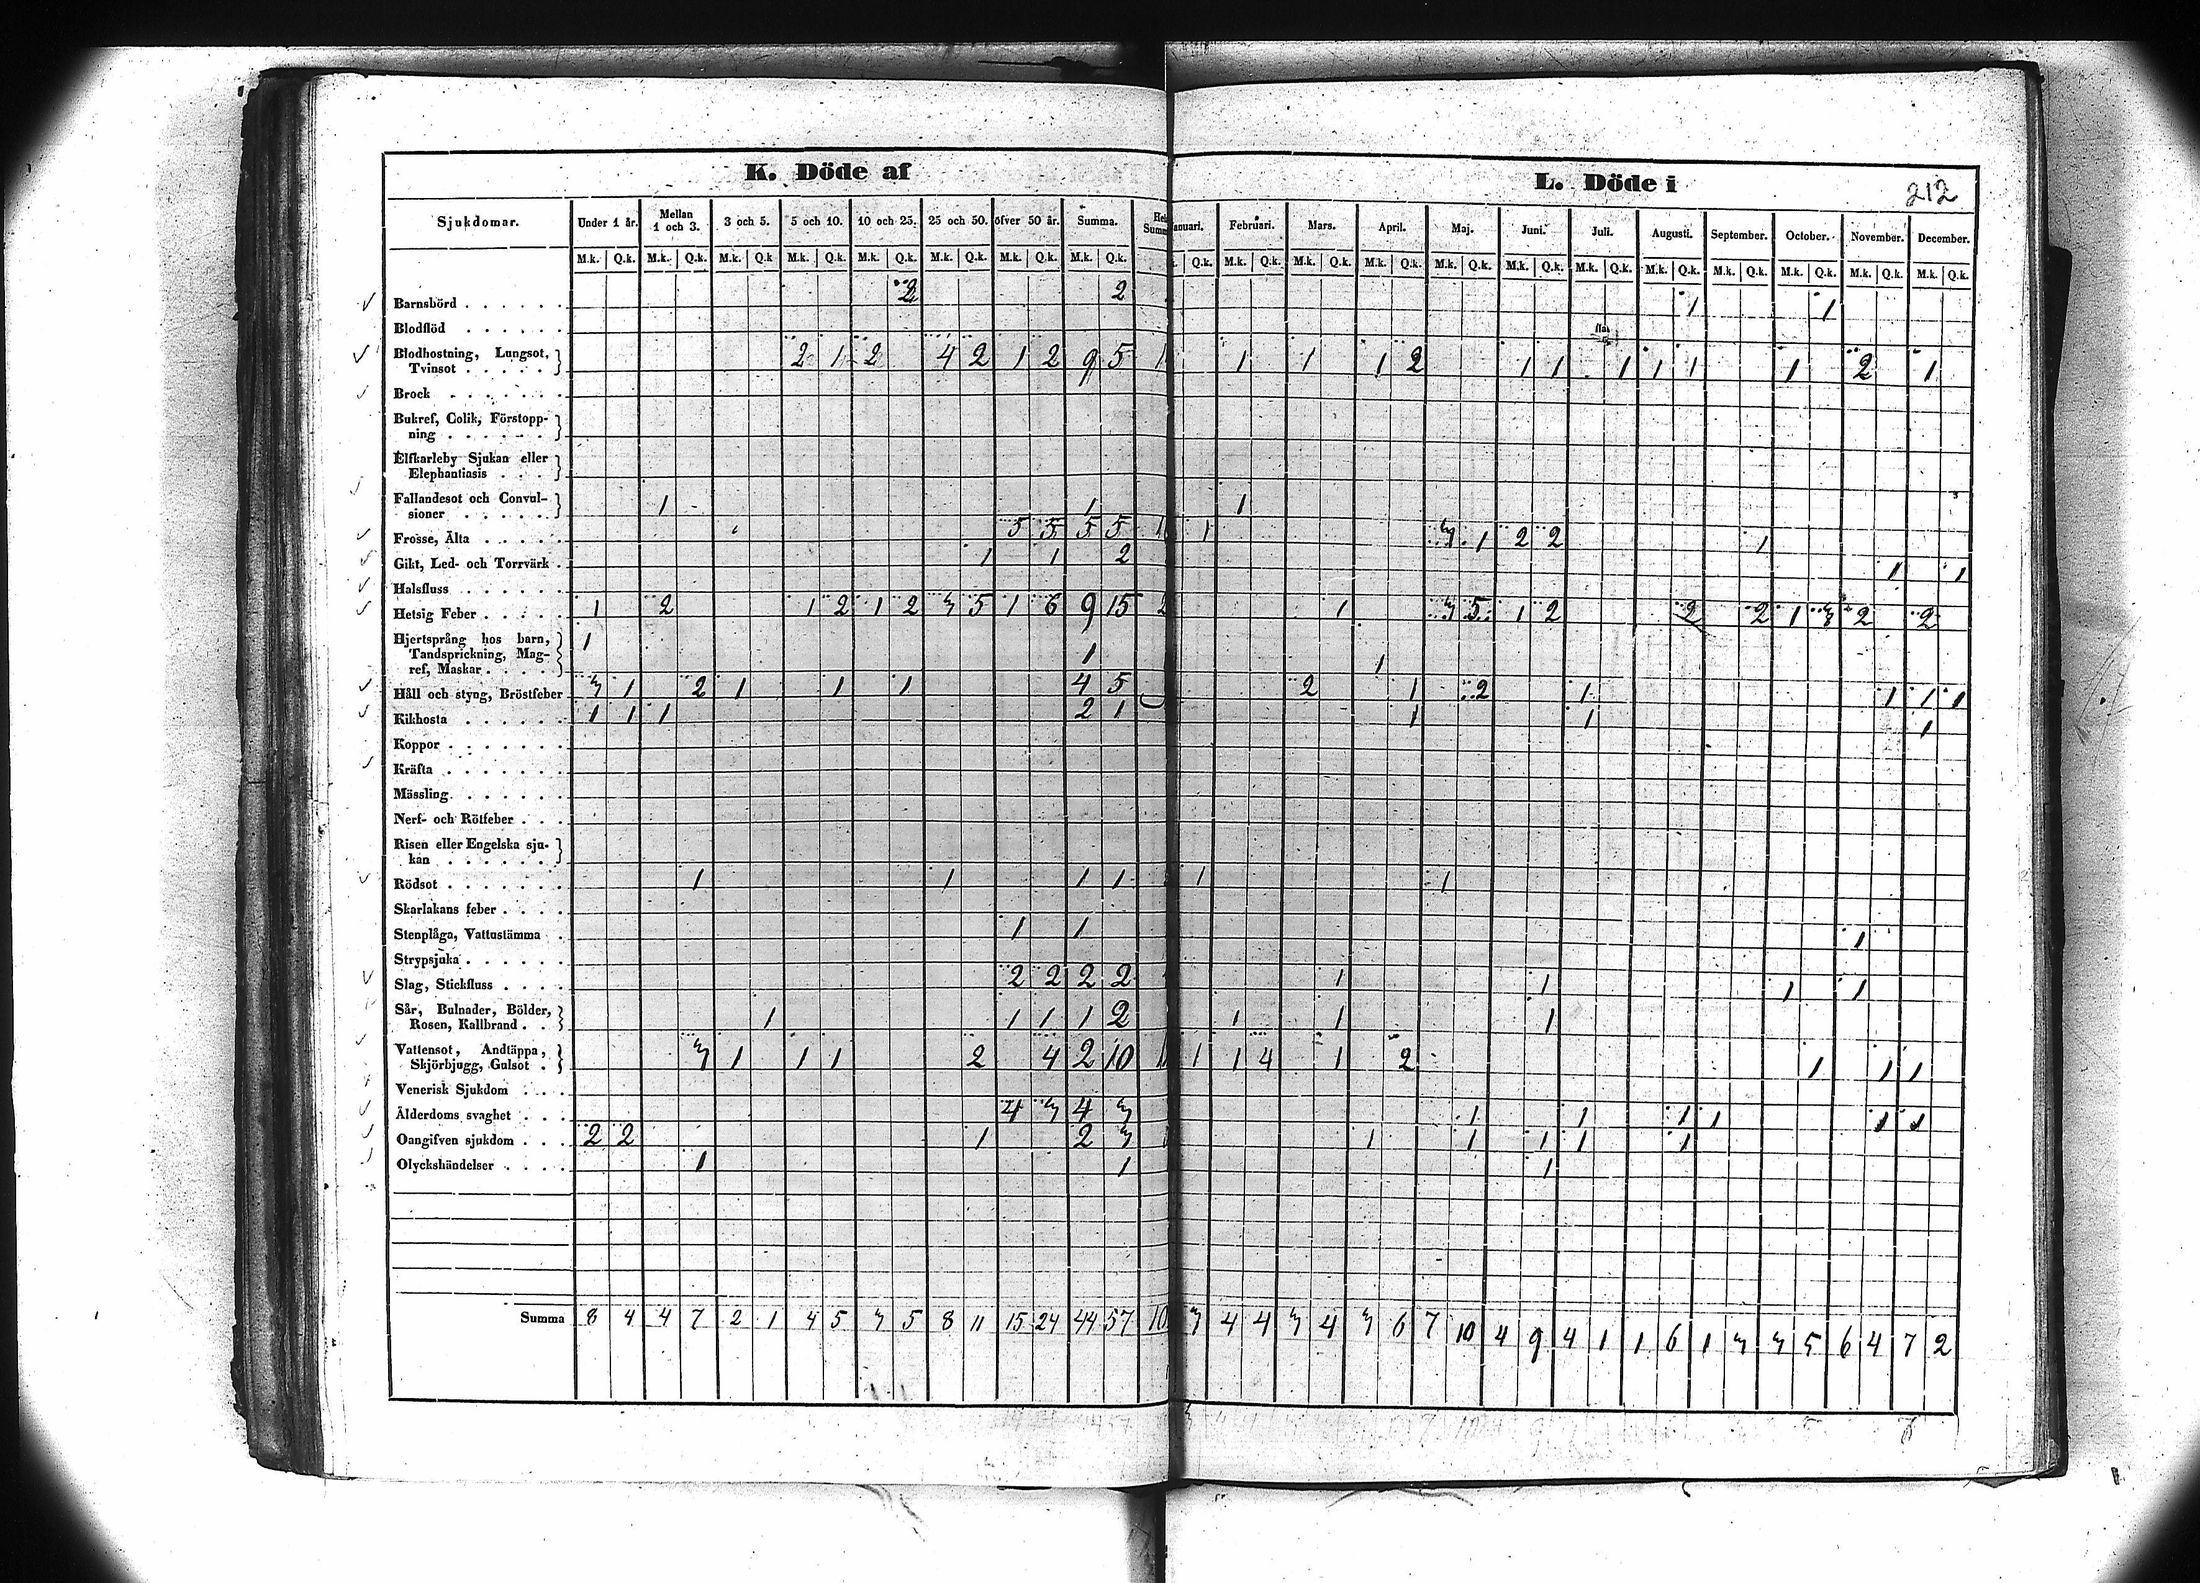 K. Döde af
L. Döde i
212
Sjukdomar.
Under 1 år. Mellan 1 och 3. 3 och 5. 5 och 10. 10 och 25. 25 och 50. öfver 50 år. Summa. Summ
anuari. Februari. Mars. April. Maj. Juni. Juli. Augusti. September. October. November. December.
M.k. Q.k. M.k. Q.k. M.k. Q.k M.k. Q.k. M.k. Q.k. M.k. Q.k. M.k. Q.k. M.k. Q.k.
Q.k. M.k. Q.k. M.k. Q.k. M.k. Q.k. M.k. Q.k. M.k. Q.k. M.k. Q.k. M.k. Q.k. M.k. Q.k. M.k. Q.k. M.k. Q.k. M.k. Q.k.
Barnsbörd . . . . . . 2 2 1 1
Blodflöd . . . . . .
Blodhostning, Lungsot,
Tvinsot . . . . . 2 1 2 4 2 1 2 9 5 1 1 1 1 2 1 1 1 1 1 1 2 1
Brock . . . . . . .
Bukref, Colik, Förstopp-
ning . . . . . .
Elfkarleby Sjukan eller
Elephantiasis . . .
Fallandesot och Convul-
sioner . . . . . 1 1 1
Frosse, Älta . . . . . 5 5 5 5 1 1 3 1 2 2 1
Gikt, Led- och Torrvärk . 1 1 2 1 1
Halsfluss . . . . . .
Hetsig Feber . . . . . 1 2 1 2 1 2 3 5 1 6 9 15 2 1 3 5 1 2 2 2 1 3 2 2
Hjertsprång hos barn,
Tandsprickning, Mag-
ref, Maskar . . . . 1 1 1
Håll och styng, Bröstfeber 3 1 2 1 1 1 4 5 2 1 2 1 1 1 1
Kikhosta . . . . . . 1 1 1 2 1 1 1 1
Koppor . . . . . . .
Kräfta . . . . . . .
Mässling . . . . . .
Nerf- och Rötfeber . . .
Risen eller Engelska sju-
kan . . . . . .
Rödsot . . . . . . . 1 1 1 1 1 1
Skarlakans feber . . . .
Stenplåga, Vattustämma . 1 1 1
Strypsjuka . . . . . .
Slag, Stickfluss . . . . 2 2 2 2 1 1 1 1
Sår, Bulnader, Bölder,
Rosen, Kallbrand . . 1 1 1 1 2 1 1 1
Vattensot, Andtäppa,
Skjörbjugg, Gulsot . 3 1 1 1 2 4 2 10 1 1 1 4 1 2 1 1 1
Venerisk Sjukdom . . .
Ålderdoms svaghet . . . 4 3 4 3 1 1 1 1 1 1
Oangifven sjukdom . . . 2 2 1 2 3 1 1 1 1 1
Olyckshändelser . . . . 1 1 1
Summa 8 4 4 7 2 1 4 5 3 5 8 11 15 24 44 57 10 3 4 4 3 4 3 6 7 10 4 9 4 1 1 6 1 3 3 5 6 4 7 2